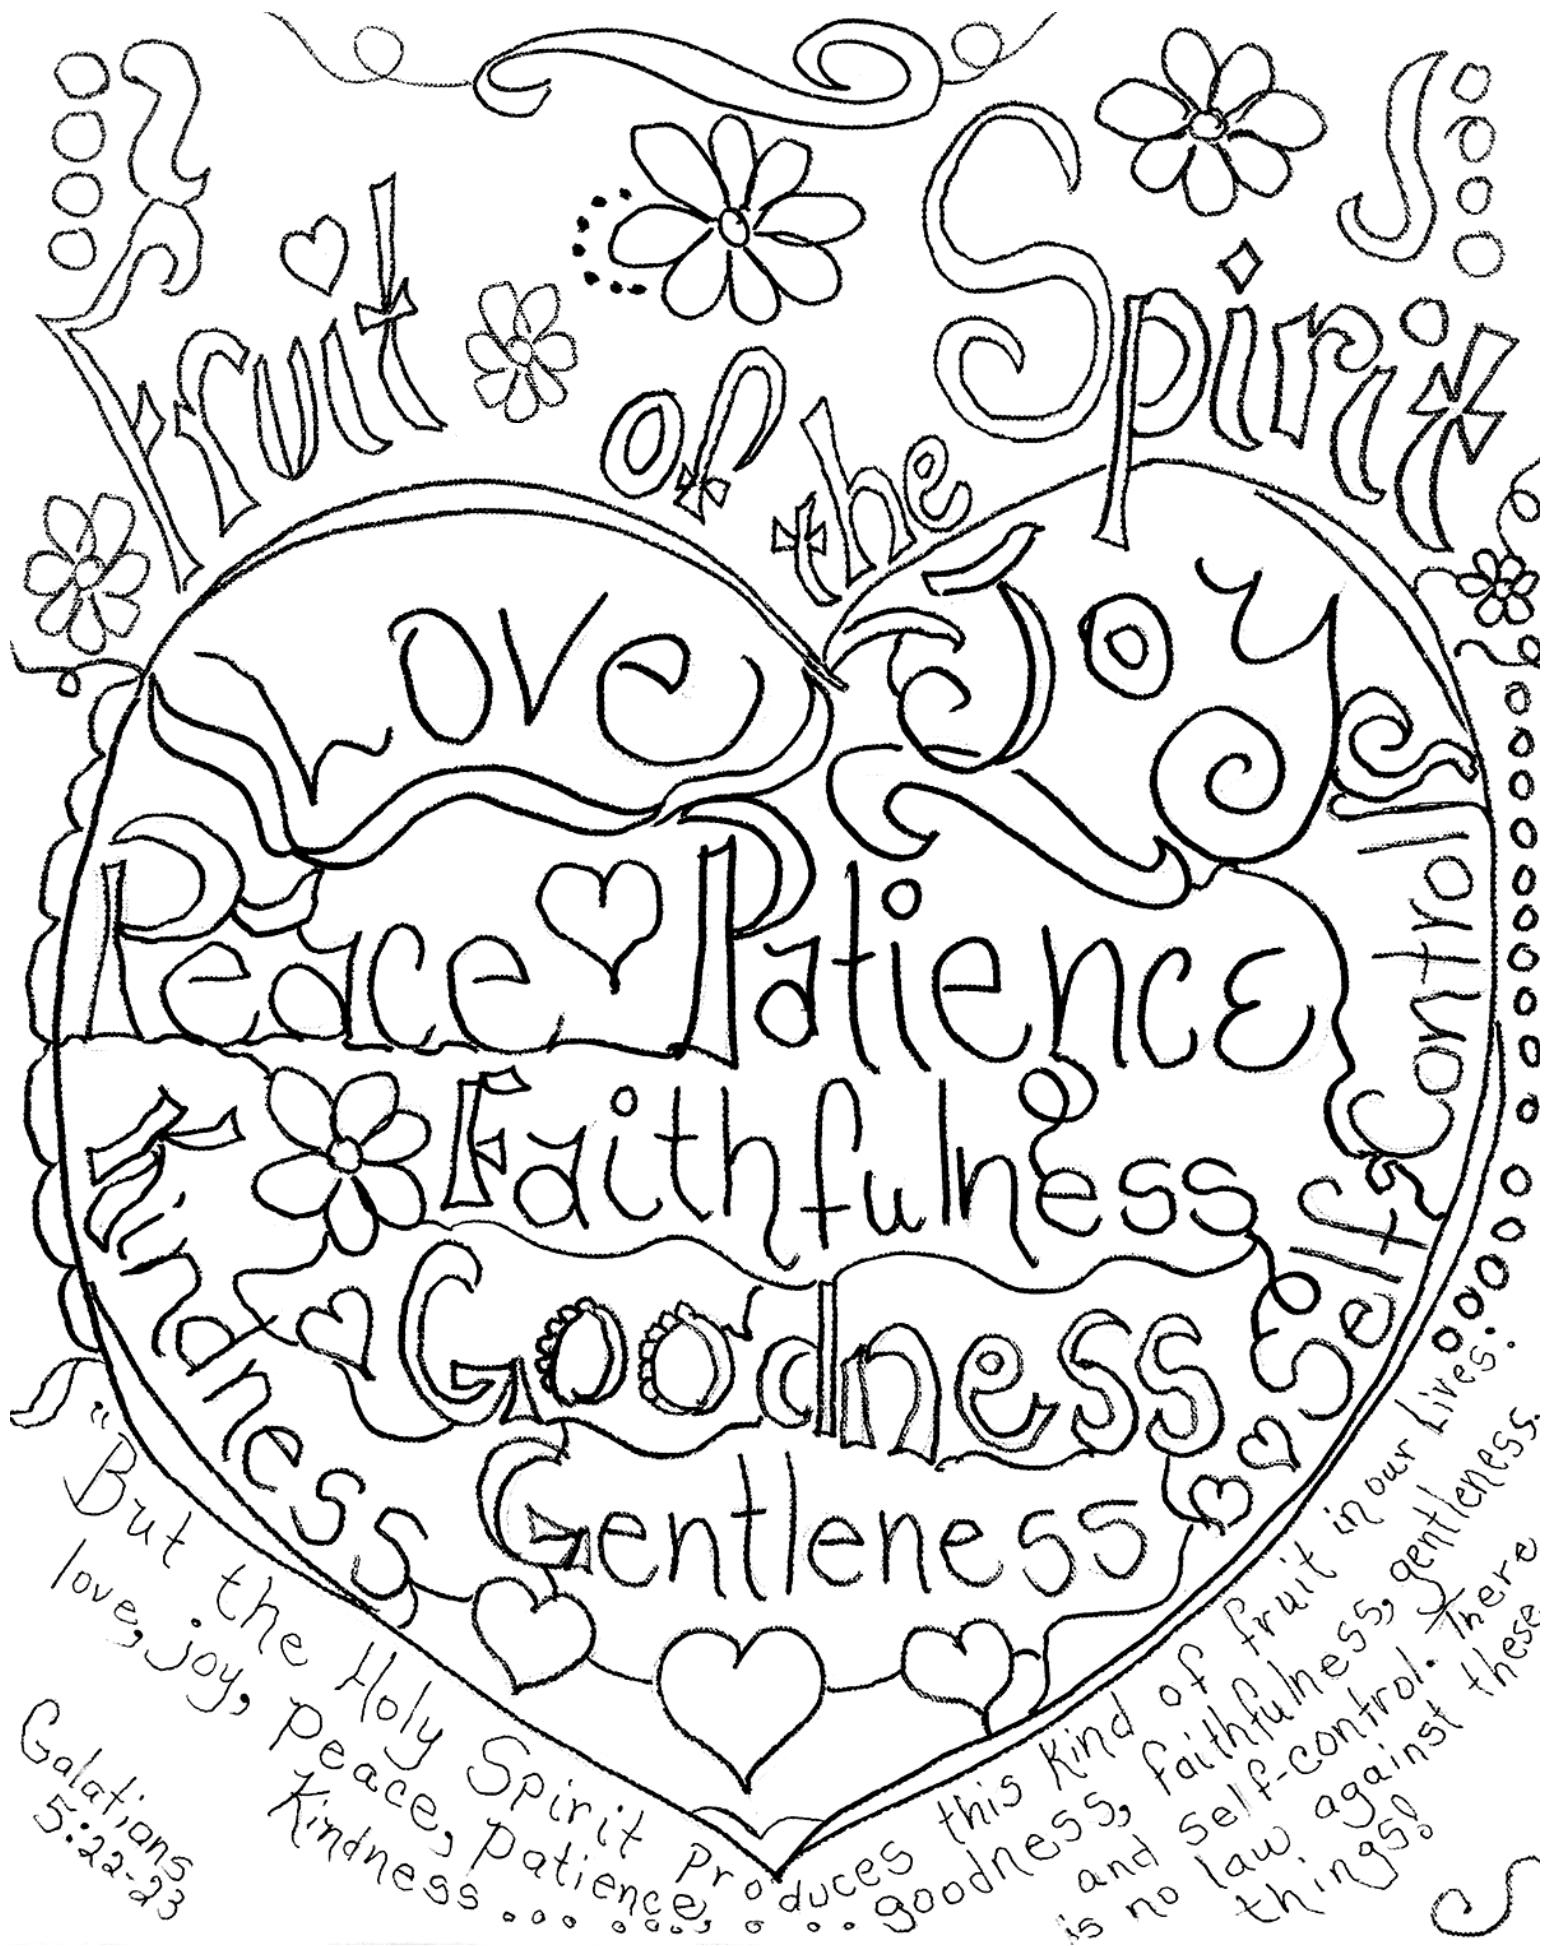 Fruit
of the
Spirit
Love
Joy
Peace
Patience
Faithfulness
Kindness
Goodness
Self Control
Gentleness
"But the Holy Spirit Produces this Kind of fruit in our Lives:
love, joy, peace, patience,
Kindness... goodness, faithfulness, gentleness.
and self-control. There
is no law against these
things!
Galatians
5:22-23